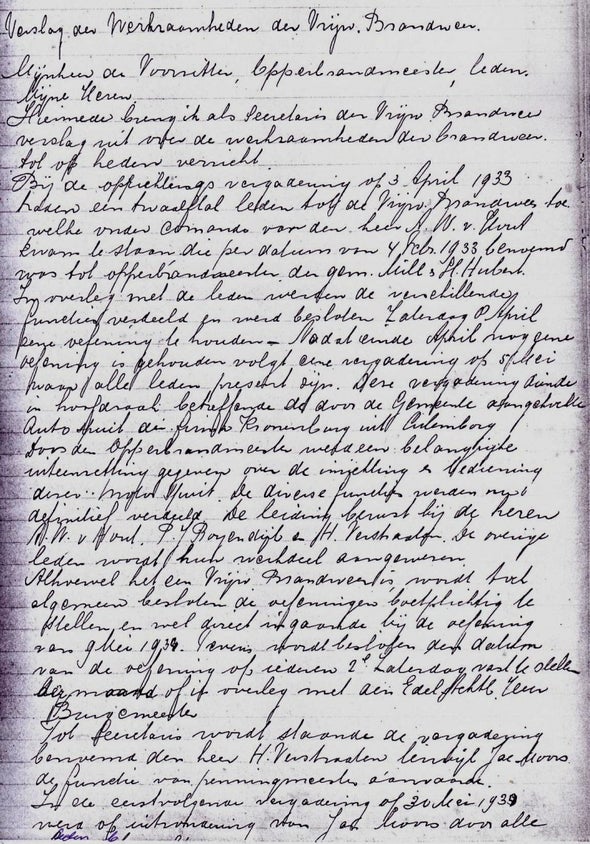 Verslag der Werkzaamheden der Vrijw. Brandweer.
Mijnheer de Voorzitter, Opperbrandmeester, leden.
Mijne Heren
Hiermede breng ik als Secretaris der Vrijw Brandweer
verslag uit over de werkzaamheden der brandweer.
tot op heden verricht
Bij de oprichtings vergadering of 3 April 1933
traden een twaalftal leden tot de Vrijw. Brandweer toe
welke onder comando van den heer W. v. Hout
kwam te staan die per datum van 4 Febr. 1933 benoemd
was tot opperbrandmeester der gem. Mill & St. Hubert.
In overleg met de leden werden de verschillende
functies verdeeld en werd besloten Zaterdag April
eene oefening te houden - Nadat einde April nog eene
oefening is gehouden volgt eene vergadering op 5 Mei
waar alle leden present zijn. Deze vergadering diende
in hoofdzaak betreffende de door de Gemeente aangekochte
Auto spuit de firma Kronenburg uit Culemborg
Door den Opperbrandmeester werd een belangrijke
uiteenzetting gegeven over de inzetting & bediening
dezer Motor spuit. De diverse functies werden nu
definitief verdeeld. De leiding berust bij de heren
W. v Hout. P. J Rozendijk en H. Verstraaten. De overige
leden wordt hun werkdeel aangewezen
Alhoewel het een Vrijw Brandweer is wordt toch
algemeen besloten de oefeningen boetplichtig te
stellen en wel direct ingaande bij de oefening
van 9 Mei 1933. Tevens wordt besloten den datum
van de oefening op iederen 2e Zaterdag vast te stellen
der maand of in overleg met den Edel Achtb. Heer
Burgemeester
Tot Secretaris wordt staande de vergadering
benoemd den heer H. Verstraaten terwijl Jac Moors
de functie van penningmeester aanvaarde.
In de eerstvolgende vergadering of 30 Mei 1933
werd op uitnodiging van Jac Moors door alle
leden